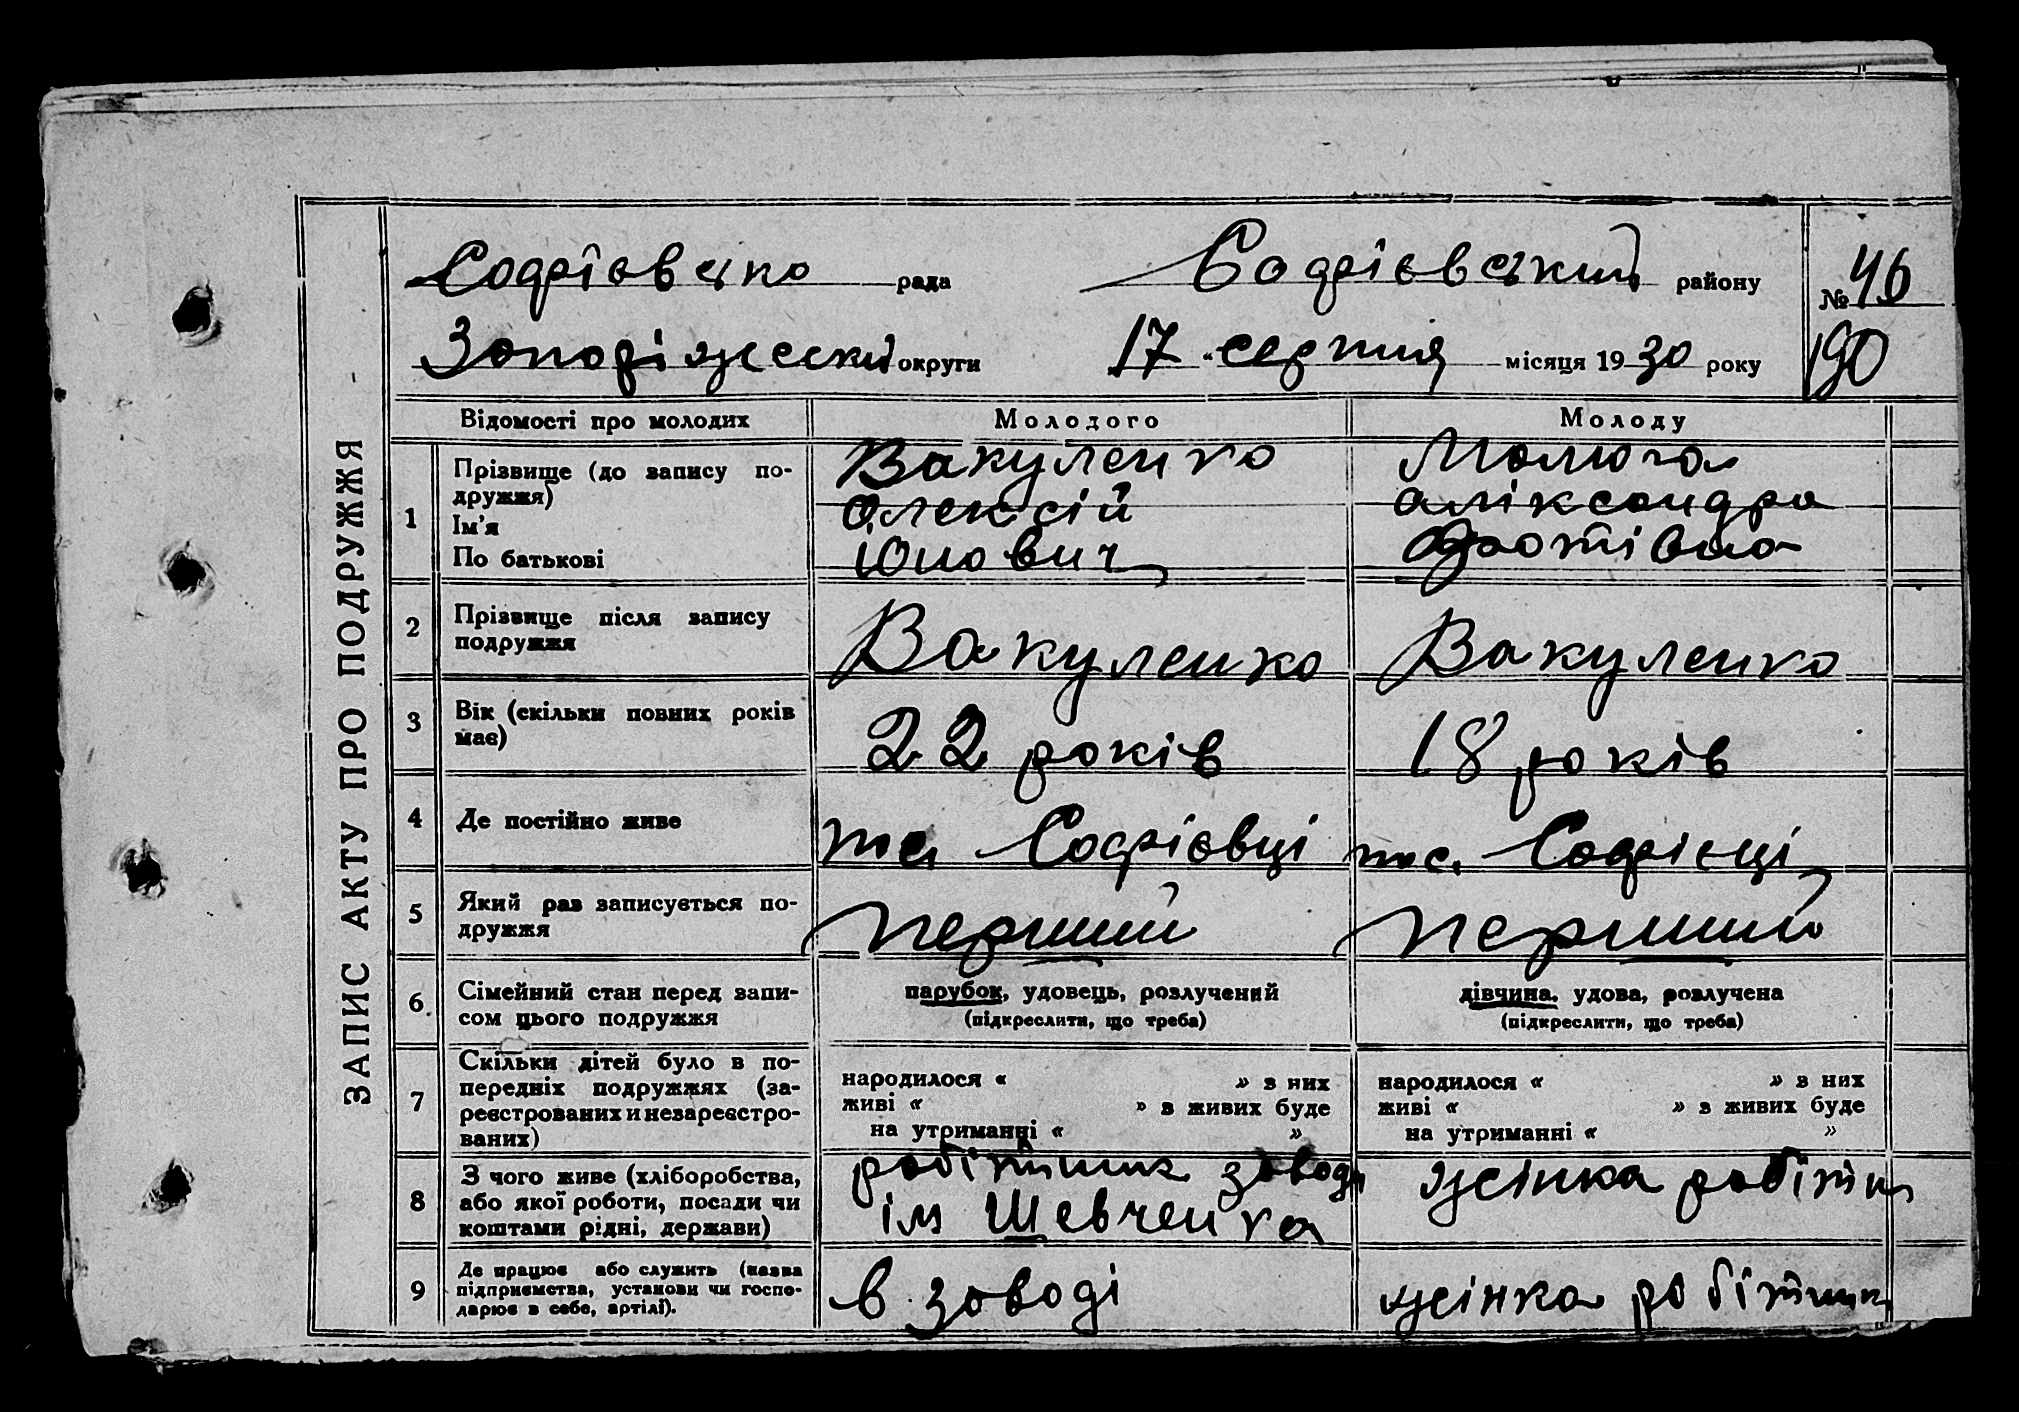 ЗАПИС АКТУ ПРО ПОДРУЖЖЯ
Софієвська рада Софієвський району №46
Запоріжської округи 17 « серпня місяця 1930 року 190
Відомості про молодих Молодого Молоду
1 Прізвище (до запису подружжя) Вакуленко
Ім'я Олексій Аліксандра
По батькові Фотівна
2 Прізвище після запису подружжя Вакуленко Вакуленко
3 Вік (скільки повних років має) 22 років 18 років
4 Де постійно живе тс. Софієвці тс. Софієці
5 Який раз записується подружжя перший перший
6 Сімейний стан перед записом цього подружжя парубок, удовець, розлучений дівчина, удова, розлучена
(підкреслити, що треба) (підкреслити, що треба)
7 Скільки дітей було в попередніх подружжях (зареєстрованих и незареєстрованих) народилося « » з них народилося « » з них
живі « » в живих буде живі « » в живих буде
на утриманні « » на утриманні « »
8 З чого живе (хліборобства, або якої роботи, посади чи коштами рідні, держави) робітник заводу ім Шевченка жінка робітн
9 Де працює або служить (назва підприємства, установи чи господарює в себе, артілі). в заводі жінка робітник